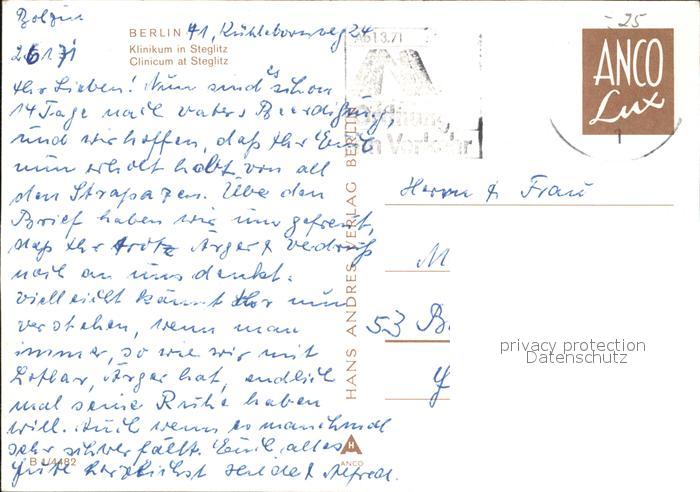 BERLIN 41, Kühlebornweg 24
Klinikum in Steglitz
Clinicum at Steglitz
Ihr Lieben! Nun sind es schon
14 Tage nach Vaters Beerdigung,
und wir hoffen, daß Ihr Euch
nun erholt habt von all
den Strapazen. Über den
Brief haben wir uns gefreut,
daß Ihr trotz Ärger & Verdruß
noch an uns denkt.
Vielleicht könnt Ihr nun
verstehen, wenn man
immer, so wie wir mit
Lothar, Ärger hat, endlich
mal seine Ruhe haben
will. Auch wenn es manchmal
sehr schwer fällt. Euch alles
Gute herzlichst Alfred.
B 1/4482
HANS ANDRES VERLAG BERLIN
ANCO
Ab 1.3.71
im Verkehr
- 25
ANCO
Lux
1
Herrn & Frau
M
53 B
privacy protection
Datenschutz